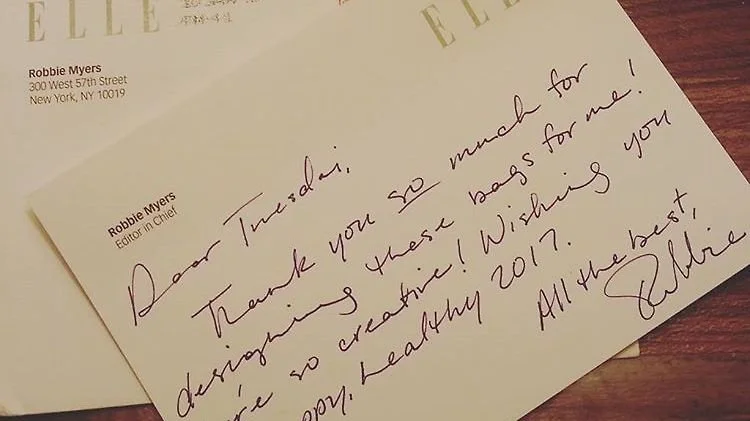 ELLE
Robbie Myers
300 West 57th Street
New York, NY 10019
ELLE
Robbie Myers
Editor in Chief
Dear Tuesdai,
Thank you so much for
designing these bags for me!
're so creative! Wishing you
ppy, healthy 2017.
All the best,
Robbie